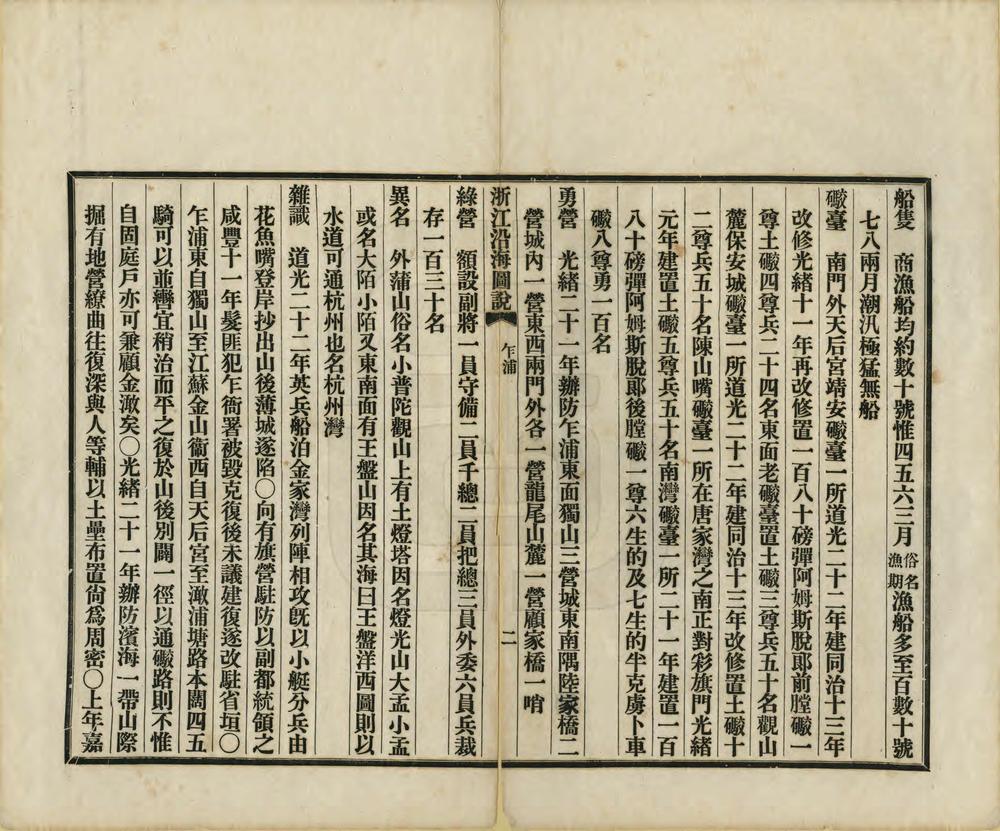 船隻　商漁船均約數十號惟四五六三月俗名漁期漁船多至百數十號
七八兩月潮汛極猛無船
礮臺　南門外天后宮靖安礮臺一所道光二十二年建同治十三年
改修光緒十一年再改修置一百八十磅彈阿姆斯脫郎前膛礮一
尊土礮四尊兵二十四名東面老礮臺置土礮三尊兵五十名觀山
麓保安城礮臺一所道光二十二年建同治十三年改修置土礮十
二尊兵五十名陳山嘴礮臺一所在唐家灣之南正對彩旗門光緒
元年建置土礮五尊兵五十名南灣礮臺一所二十一年建置一百
八十磅彈阿姆斯脫郎後膛礮一尊六生的及七生的半克虜卜車
礮八尊勇一百名
勇營　光緒二十一年辦防乍浦東面獨山三營城東南隅陸家橋二
營城內一營東西兩門外各一營龍尾山麓一營顧家橋一哨
浙江沿海圖說　乍浦　二
綠營　額設副將一員守備二員千總二員把總三員外委六員兵裁
存一百三十名
異名　外蒲山俗名小普陀觀山上有土燈塔因名燈光山大孟小孟
或名大陌小陌又東南面有王盤山因名其海曰王盤洋西圖則以
水道可通杭州也名杭州灣
雜識　道光二十二年英兵船泊金家灣列陣相攻旣以小艇分兵由
花魚嘴登岸抄出山後薄城遂陷〇向有旗營駐防以副都統領之
咸豐十一年髮匪犯乍衙署被毀克復後未議建復遂改駐省垣〇
乍浦東自獨山至江蘇金山衞西自天后宮至澉浦塘路本闊四五
騎可以並轡宜稍治而平之復於山後別闢一徑以通礮路則不惟
自固庭戶亦可兼顧金澉矣〇光緒二十一年辦防濱海一帶山際
掘有地營繚曲往復深與人等輔以土壘布置尙爲周密〇上年嘉